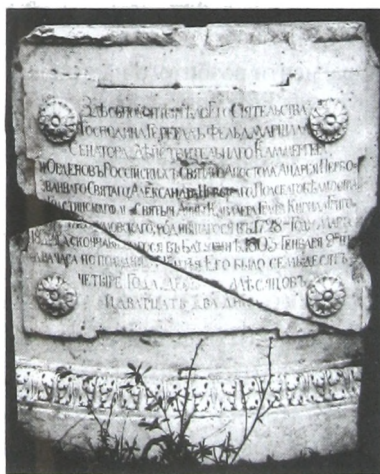 ЗДѢСЬ ПОКОИТСЯ ТѢЛО ЕГО СІЯТЕЛЬСТВА
ГОСПОДИНА ГЕНЕРАЛЪ ФЕЛЬДМАРШАЛА
СЕНАТОРА ДѢЙСТВИТЕЛЬНАГО КАММЕРГЕРА
И ОРДЕНОВЪ РОССІЙСКИХЪ СВЯТАГО АПОСТОЛА АНДРЕЯ ПЕРВО
ЗВАННАГО СВЯТАГО АЛЕКСАНДРА НЕВСКАГО ПОЛЬСКАГО БѢЛАГО ОРЛА
И СВЯТЫЯ АННЫ КАВАЛЕРА ГРАФА КИРИЛА ГРИГО
РОДИВШАГОСЯ ВЪ 1728 ГОДУ МАРТА
СКОНЧАВШАГОСЯ ВЪ БАТУРИНѢ 1803 ГЕНВАРЯ 9
ЧАСА ПО ПОЛУДНИ ЕГО БЫЛО СЕМЬДЕСЯТЪ
ЧЕТЫРЕ ГОДА МѢСЯЦОВЪ
И ДВАДЦАТЬ ДВА ДНИ